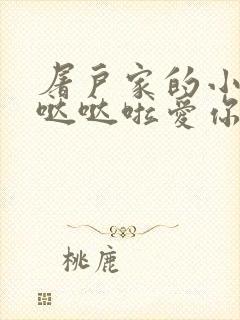 屠户家的小
哒哒啦爱你
桃鹿